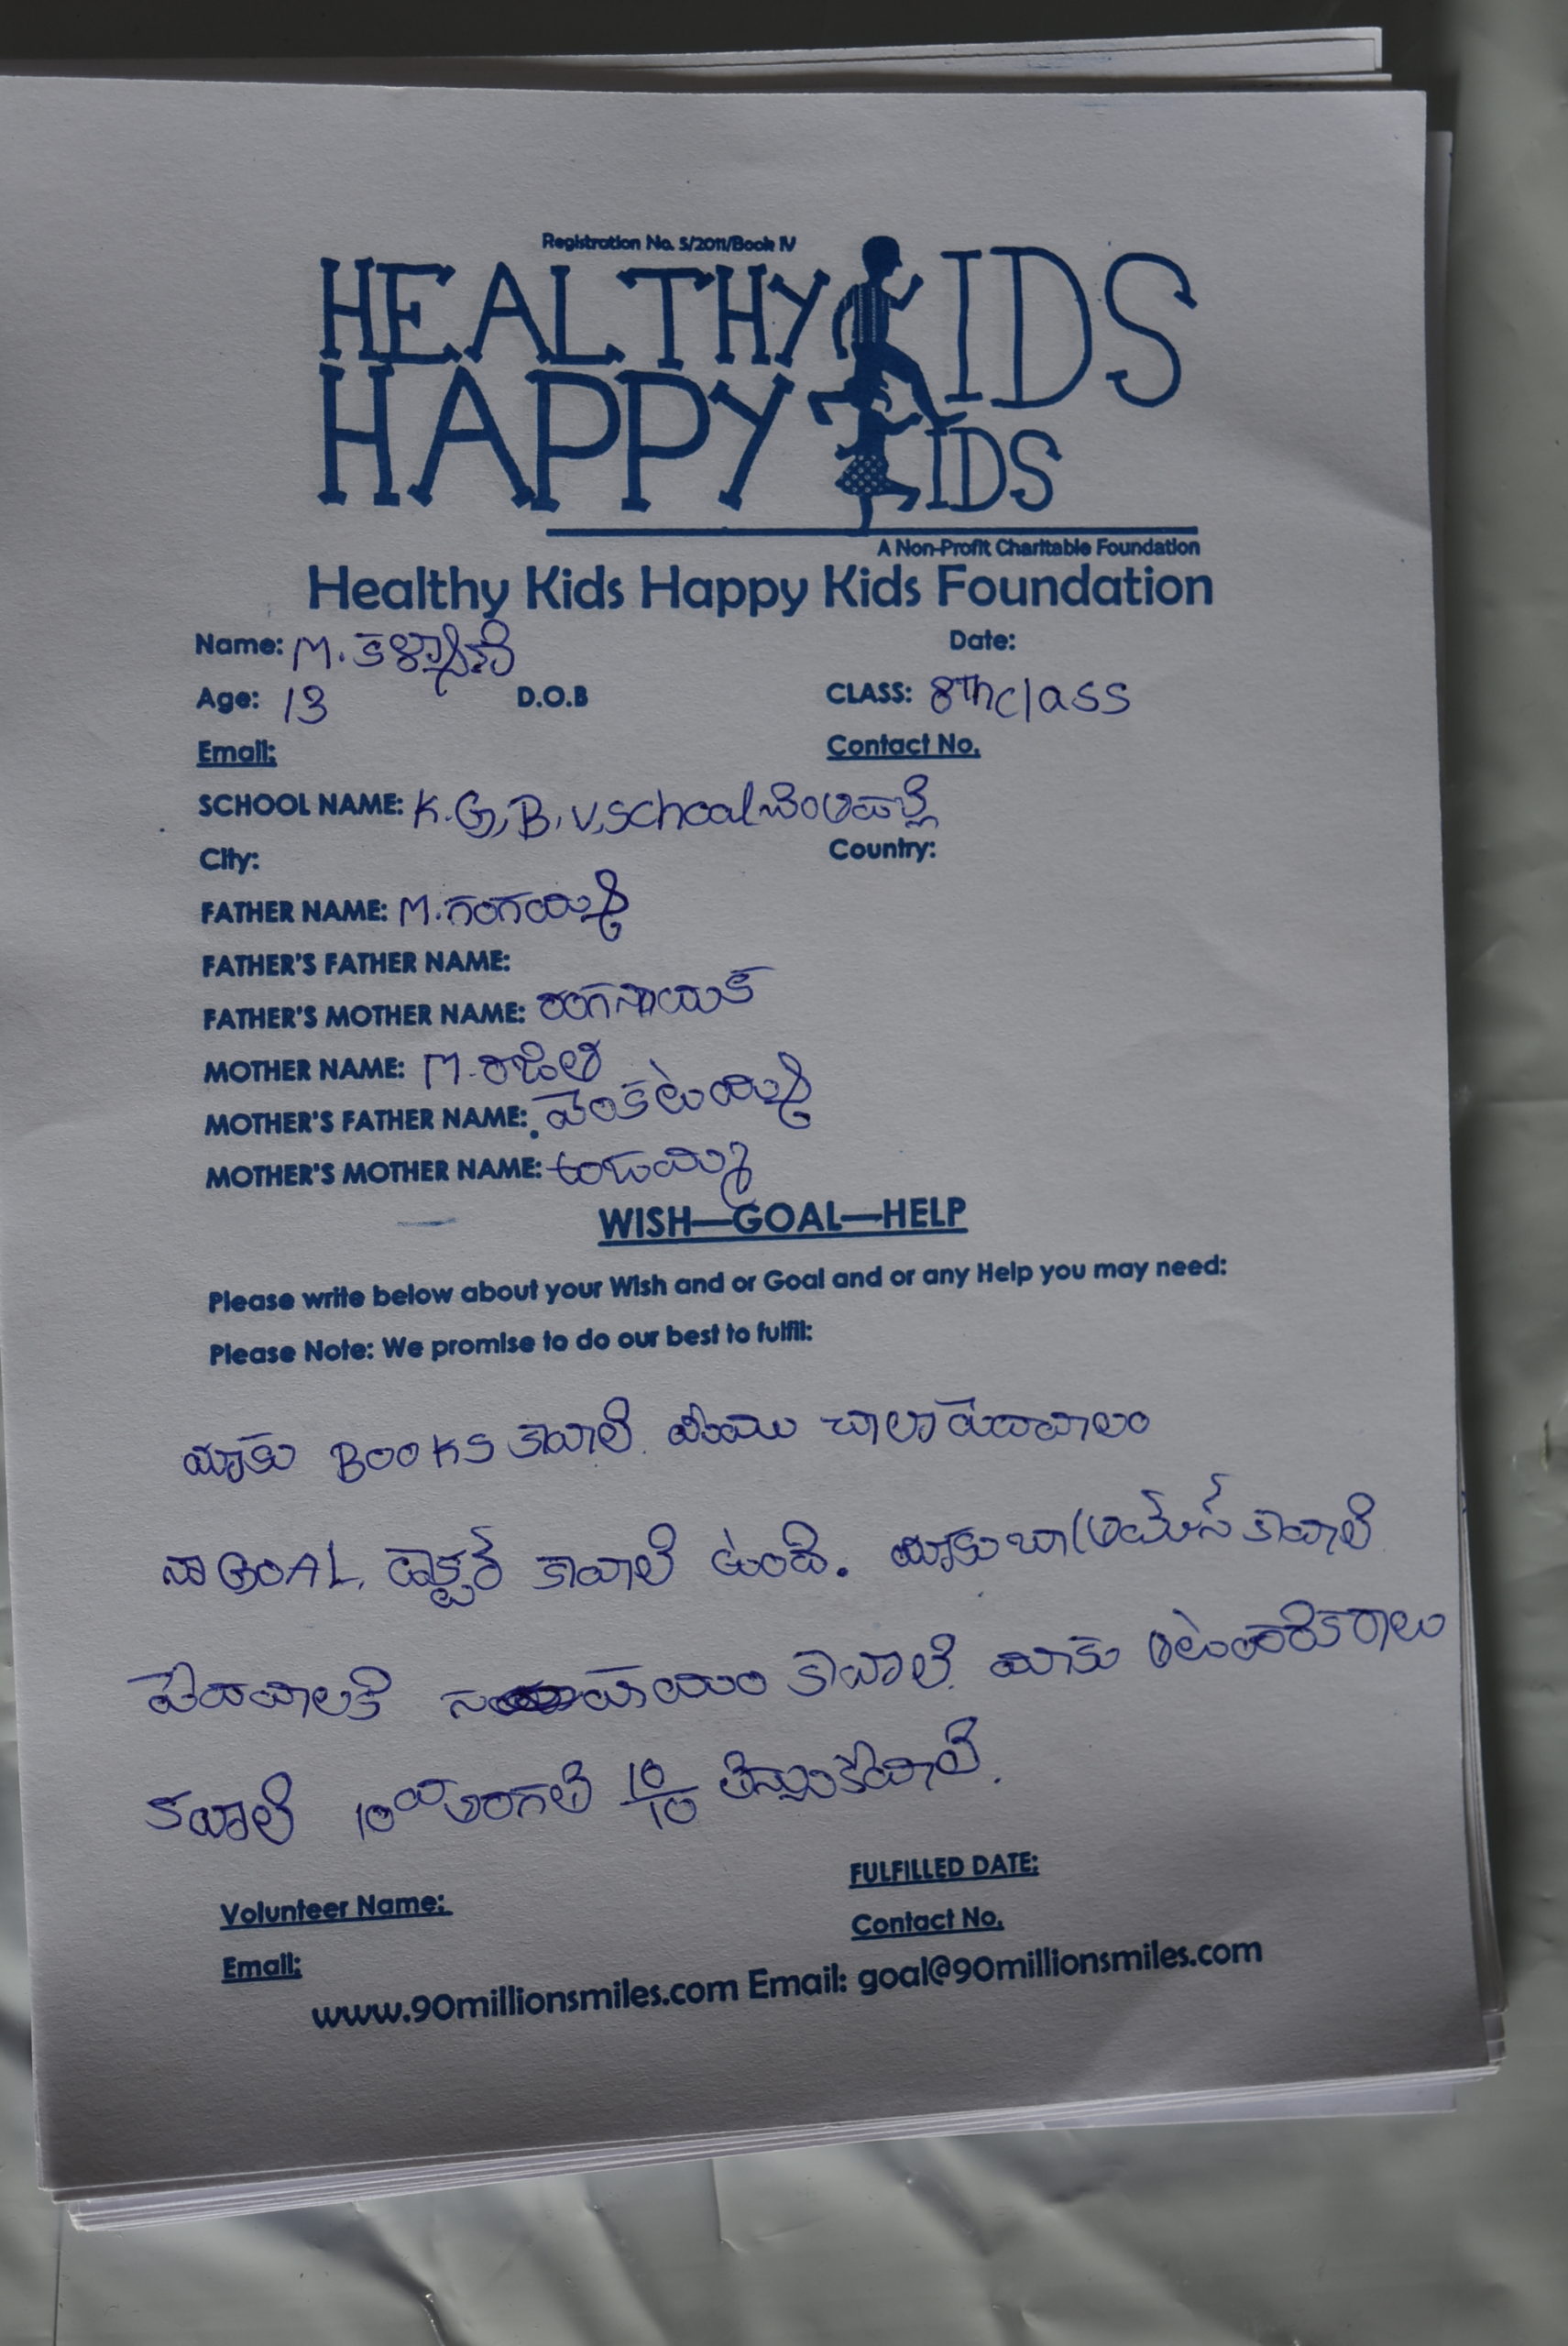 Registration No. 5/2011/Book IV
HEALTHY KIDS
HAPPY KIDS
A Non-Profit Charitable Foundation
Healthy Kids Happy Kids Foundation
Name: M. కళ్యాణి Date:
Age: 13 D.O.B CLASS: 8th class
Email: Contact No.
SCHOOL NAME: K.G,B,V,school
City: Country:
FATHER NAME: M. గంగయ్య
FATHER'S FATHER NAME:
FATHER'S MOTHER NAME: రంగనాయక
MOTHER NAME: M. రజిత
MOTHER'S FATHER NAME: వెంకటయ్య
MOTHER'S MOTHER NAME:
WISH—GOAL—HELP
Please write below about your Wish and or Goal and or any Help you may need:
Please Note: We promise to do our best to fulfil:
మాకు BOOKS కావాలి. మేము చాలా పేదవాలం
నా GOAL, డాక్టర్ కావాలి ఉంది. మాకు కావాలి
పేదవాలకి కావాలి. మాకు
కవాలి 10 10/10
FULFILLED DATE:
Volunteer Name: Contact No.
Email:
www.90millionsmiles.com Email: goal@90millionsmiles.com